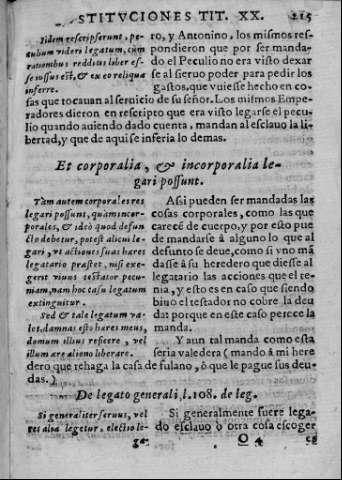 STITVCIONES TIT. XX. 215
Iidem rescripserunt, pe-
culium videri legatum, cùm
rationibus redditis liber es-
se iussus est, & ex eo reliqua
inferre.
ro, y Antonino, los mismos res-
pondieron que por ser manda-
do el Peculio no era visto dexar
se al sieruo poder para pedir los
gastos, que vuiesse hecho en co-
sas que tocauan al seruicio de su señor. Los mismos Empe-
radores dieron en rescripto que era visto legarse el pecu-
lio quando auiendo dado cuenta, mandan al esclauo la li-
bertad, y que de aqui se inferia lo demas.
Et corporalia, & incorporalia le-
gari possunt.
Tam autem corporales res
legari possunt, quàm incor-
porales, & ideò quod defun
cto debetur, potest alicui le-
gari, vt actiones suas hares
legatario prastet, nisi exe-
gerit viuus testator pecu-
niam, nam hoc casu legatum
extinguitur.
Sed & tale legatum va-
let, damnas esto hares meus,
domum illius reficere, vel
illum are alieno liberare.
Assi pueden ser mandadas las
cosas corporales, como las que
carecē de cuerpo, y por esto pue
de mandarse à alguno lo que al
defunto se deue, como si vno mā
dasse à su heredero que diesse al
legatario las acciones que el te-
nia, y esto es en caso que siendo
biuo el testador no cobre la deu
dat porque en este caso perece la
manda.
Y aun tal manda como esta
seria valedera (mando à mi here
dero que rehaga la casa de fulano, ò que le pague sus deu-
das.)
De legato generali, l. 108. de leg.
Si generaliter seruus, vel
res alia legetur, electio le-
ga-
Si generalmente fuere lega-
do esclauo ò otra cosa escoger
O 4 es